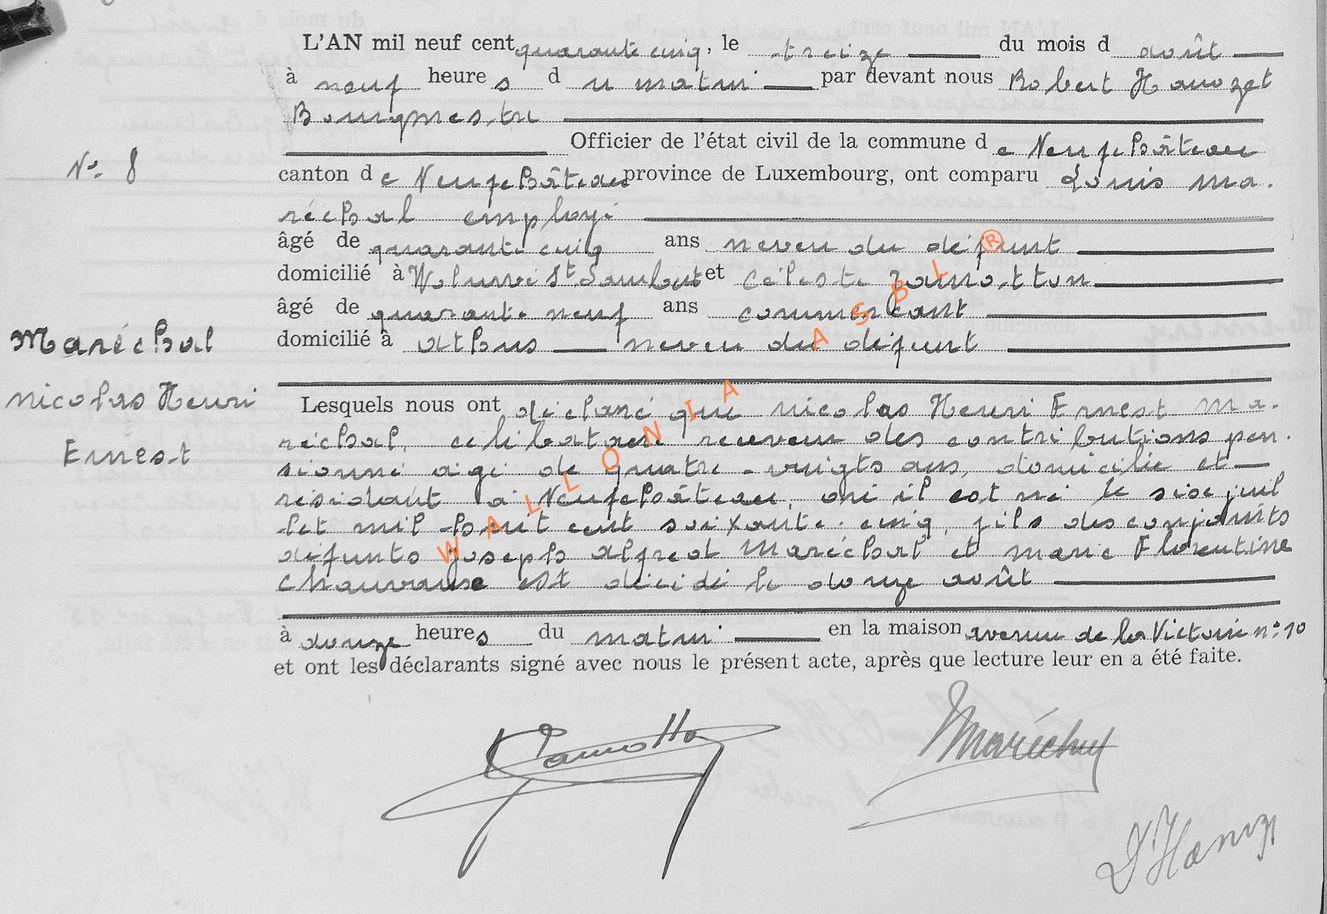 L'AN mil neuf cent quarante cinq, le treize du mois d août
à neuf heures du matin par devant nous Robert Hanozet
Bourgmestre
Officier de l'état civil de la commune de Neufchâteau
N° 8
canton de Neufchâteau province de Luxembourg, ont comparu Louis Ma.
réchal employé
âgé de quarante cinq ans neveu du défunt
domicilié à Woluwé St Lambert et Céleste Jamotton
âgé de quarante neuf ans commerçant
domicilié à Athus neveu du défunt
Maréchal
Nicolas Henri
Ernest
Lesquels nous ont déclaré que Nicolas Henri Ernest Ma.
réchal, célibataire receveur des contributions pen.
sionné agé de quatre-vingts ans, domicilié et
résidant à Neufchâteau, où il est né le seize juil
let mil huit cent soixante. cinq, fils des conjoints
défunts Joseph Alfred Maréchal et Marie Florentine
Chauvaux est décédé le douze août
à douze heures du matin en la maison avenue de la Victoire n° 10
et ont les déclarants signé avec nous le présent acte, après que lecture leur en a été faite.
Jamotto
Maréchal
WALLONIA ASBL ®